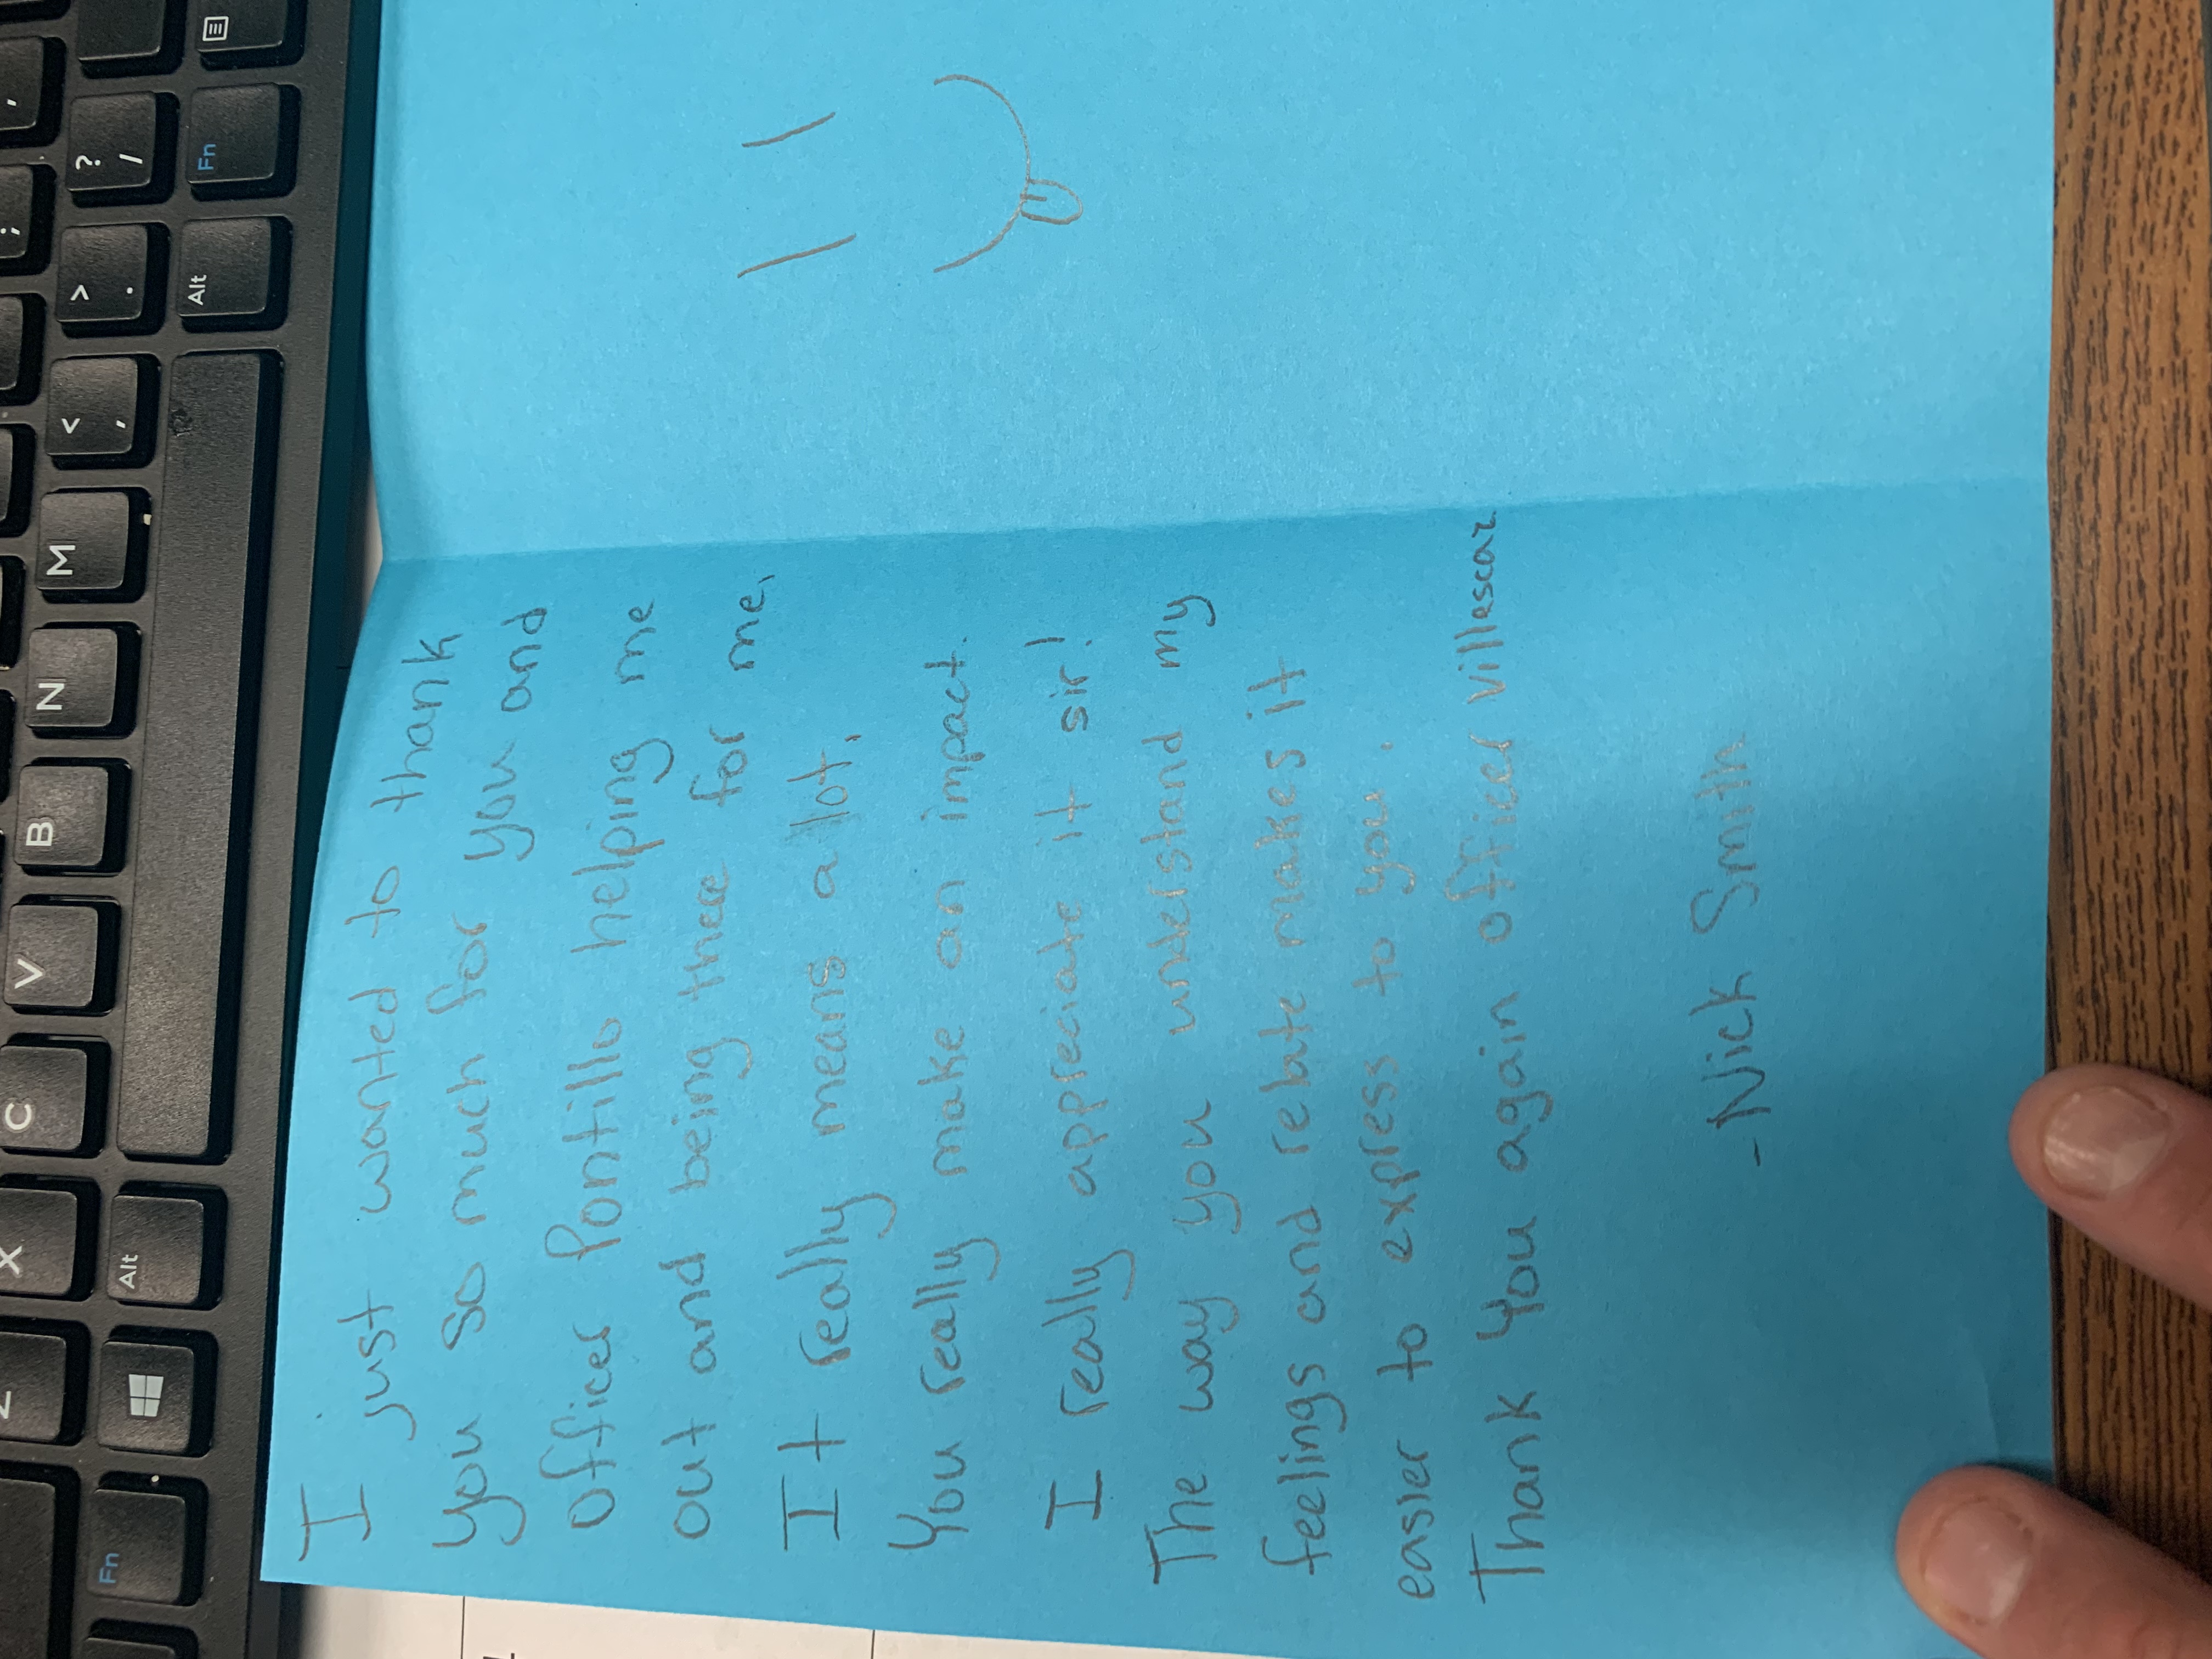 I just wanted to thank
you so much for you and
officer Pontillo helping me
out and being there for me.
It really means a lot.
You really make an impact.
I really appreciate it sir!
The way you understand my
feelings and rebate makes it
easier to express to you.
Thank You again officer Villescaz
-Nick Smith
Z X C V B N M < , > . ? / ;
Fn Alt Alt Fn